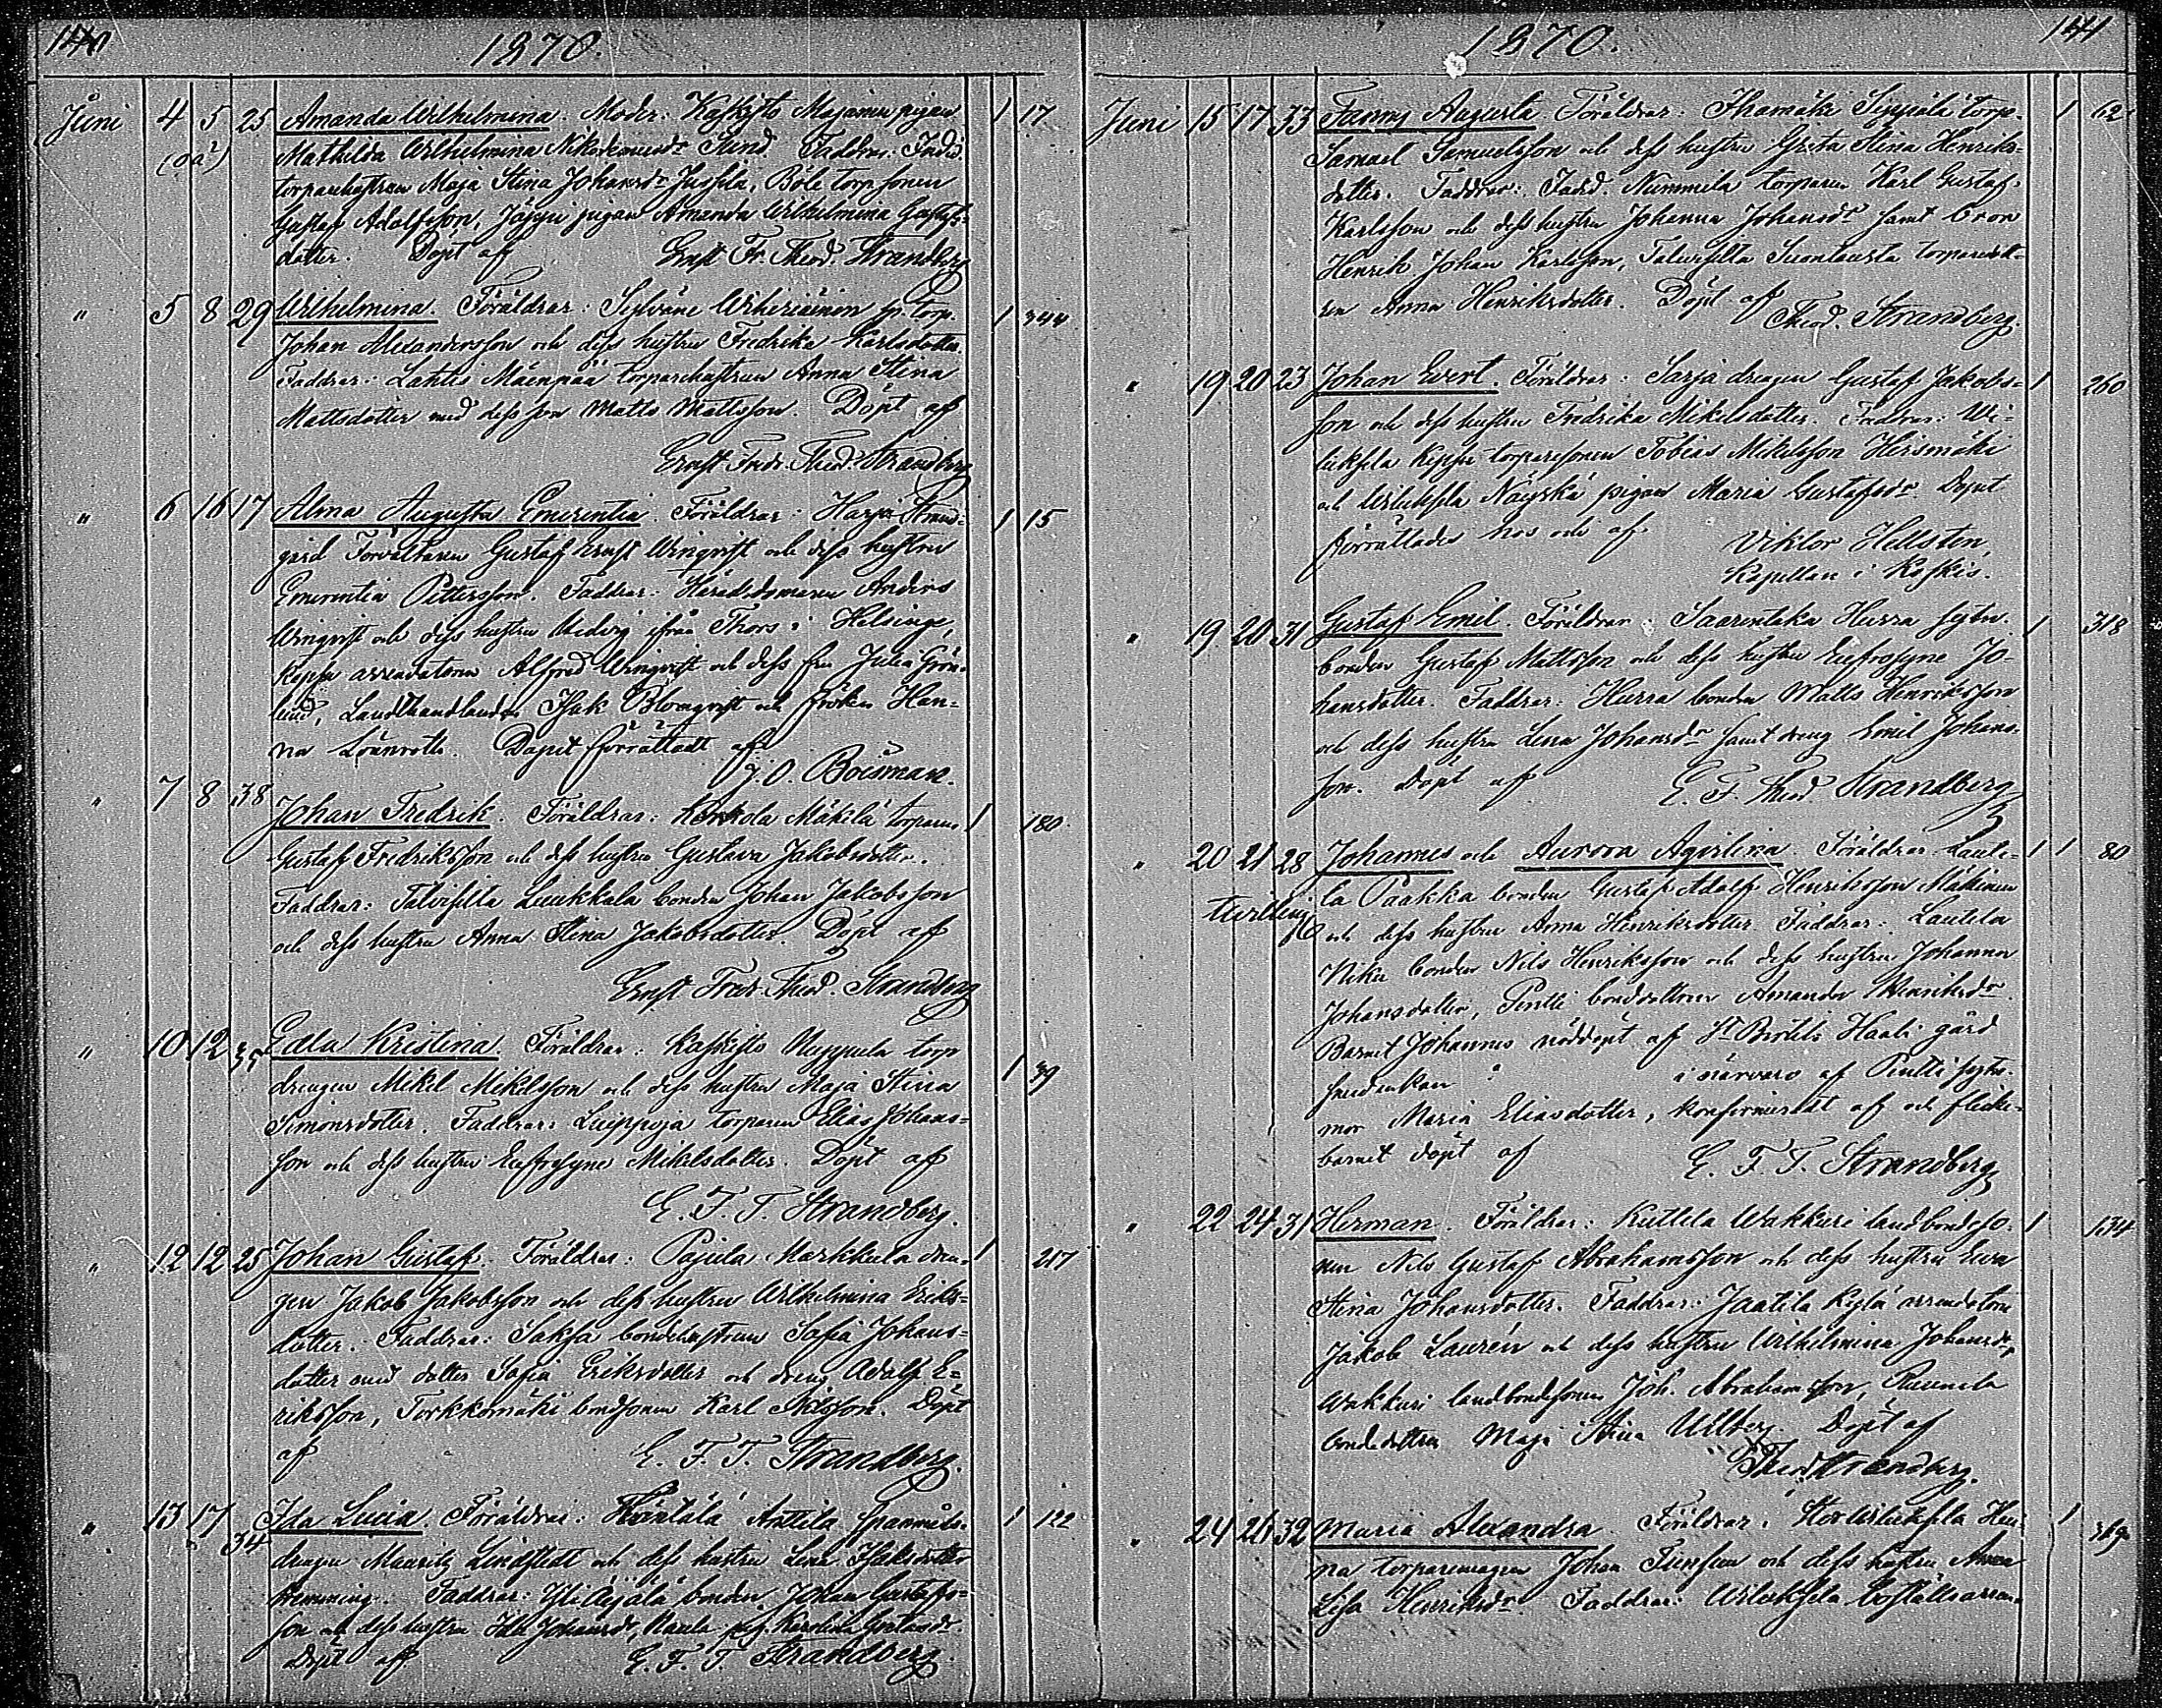 140
1870.
Juni 4 5 25 Amanda Wilhelmina. Moder: Kaskisto Majamu pigan 1 17
(o ä) Mathilda Wilhelmina Nikodemusdr Sund. Faddrar: Inder
torparehustrun Maja Stina Johansdr Jussila, Böle torpsonen
Gustaf Adolfsson, Jäppi pigan Amanda Wilhelmina Gustafs-
dotter. Döpt af Ernst Fr. Theod. Strandberg
" 5 8 29 Wilhelmina. Föräldrar: Sylväne torp. 1 344
Johan Alexandersson och dess hustru Fredrika Karlsdotter.
Faddrar: Lahtis Mäenpää torparehustrun Anna Stina
Mattsdotter med dess son Matts Mattsson. Döpt af
Ernst Fredr. Theod. Strandberg
" 6 16 17 Alma Augusta Emerentia. Föräldrar: Harja Strand- 1 15
gård Förvaltaren Gustaf Ernst Wingqvist och dess hustru
Emerentia Pettersson. Faddrar: Häradsdomaren Anders
Wingqvist och dess hustru Hedvig ifrån Thors i Helsinge,
Kepsu arrendatoren Alfred Wingqvist och dess fru Julia Grön-
lund, Landthandlanden Isak Blomqvist och fröken Han-
na Lönnroth. Dopet förrättadt af
J. O. Boisman.
" 7 8 38 Johan Fredrik. Föräldrar: Mäkilä torparen 1 180
Gustaf Fredriksson och dess hustru Gustava Jakobsdotter.
Faddrar: Talvisilla Luukkala bonden Johan Jakobsson
och dess hustru Anna Stina Jakobsdotter. Döpt af
Ernst Fredr. Theod. Strandberg
" 10 12 35 Edla Kristina. Föräldrar: Kaskisto Nuppula torp 1 39
drengen Mikel Mikelsson och dess hustru Maja Stina
Simonsdotter. Faddrar: Leippoja torparen Elias Johans-
son och dess hustru Eufrosyne Mikelsdotter. Döpt af
E. F. T. Strandberg.
" 12 12 25 Johan Gustaf. Föräldrar: Pajula Markkula dren- 1 217
gen Jakob Jakobsson och dess hustru Wilhelmina Eriks-
dotter. Faddrar: Saksa bondehustrun Sofia Johans-
dotter med dotter Sofia Eriksdotter och dreng Adolf E-
riksson, Torkkomäki bondsonen Karl Nilsson. Döpt
af E. F. T. Strandberg.
" 13 17 34 Ida Lucia. Föräldrar: Häntälä Anttila spanmåls- 1 122
drengen Mauritz Lindstedt och dess hustru Lena Isaksdotter
Hemming. Faddrar: Yli Äijälä bonden Johan Gustafs-
son och dess hustru Ida Johansdr, Naula pig. Karolina Gustafsdr.
Döpt af E. F. T. Strandberg.
141
1870.
Juni 15 17 33 Fanny Augusta. Föräldrar: Ihamäki Seppälä torp. 1 62
Samuel Samuelsson och dess hustru Greta Stina Henriks-
dotter. Faddrar: Nummila torparen Karl Gustaf
Karlsson och dess hustru Johanna Johansdr samt bror
Henrik Johan Karlsson, Talvisilla Suontausta torparedot-
ren Anna Henriksdotter. Döpt af
Theod. Strandberg.
" 19 20 23 Johan Evert. Föräldrar: Sarja drengen Gustaf Jakobs- 1 260
son och dess hustru Fredrika Mikelsdotter. Faddrar: Wi-
luksela Keppu torparesonen Tobias Mikelsson Heismäki
och Wiluksela Näyskä pigan Maria Gustafsdr. Dopet
förrättades hos och af Viktor Hellsten,
Kapellan i Koskis.
" 19 20 31 Gustaf Emil. Föräldrar: Saarentaka Hurra sytn. 1 318
bonden Gustaf Mattsson och dess hustru Eufrosyne Jo-
hansdotter. Faddrar: Hurra bonden Matts Henriksson
och dess hustru Lena Johansdr samt dreng Emil Johans-
son. Döpt af E. F. Theod. Strandberg
" 20 21 28 Johannes och Aurora Agvilina. Föräldrar: Laute- 1 1 80
Tvilling la Paakka bonden Gustaf Adolf Henriksson Mäkinen
och dess hustru Anna Henriksdotter. Faddrar: Lautela
Niku bonden Nils Henriksson och dess hustru Johanna
Johansdotter, Pentti bonddottren Amanda Henriksdr.
Barnet Johannes nöddöpt af St Bertils Haali gård
i närvaro af Pentti sytn.
mor Maria Eliasdotter, konfirmeradt af och flicke-
barnet döpt af E. F. T. Strandberg
" 22 24 31 Herman. Föräldrar: Kuttila Wakkuri landbondeso- 1 134
nen Nils Gustaf Abrahamsson och dess hustru Ewa
Stina Johansdotter. Faddrar: Jaatila Kylä arrendatorn
Jakob Laurén och dess hustru Wilhelmina Johansdr,
Wakkuri landbondsonen Joh. Abrahamsson, Raunela
bondedottren Maja Stina Ullberg. Döpt af
Theod. Strandberg.
" 24 26 32 Maria Alexandra. Föräldrar: Stor Wiluksela Hen- 1 369
na torparemågen Johan Tunsun och dess hustru Anna
Lisa Henriksdr. Faddrar: Wiluksela boställsarren-